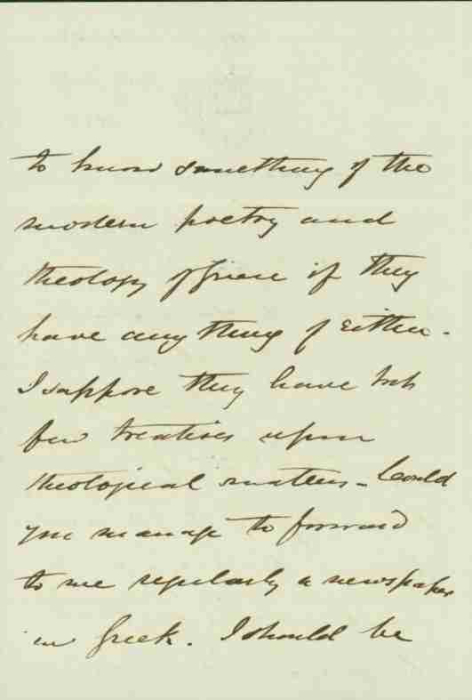 to know something of the
modern poetry and
theology of Greece if they
have any thing of either.
I suppose they have but
few treatises upon
theological matters - Could
you manage to forward
to me regularly a newspaper
in Greek. I should be